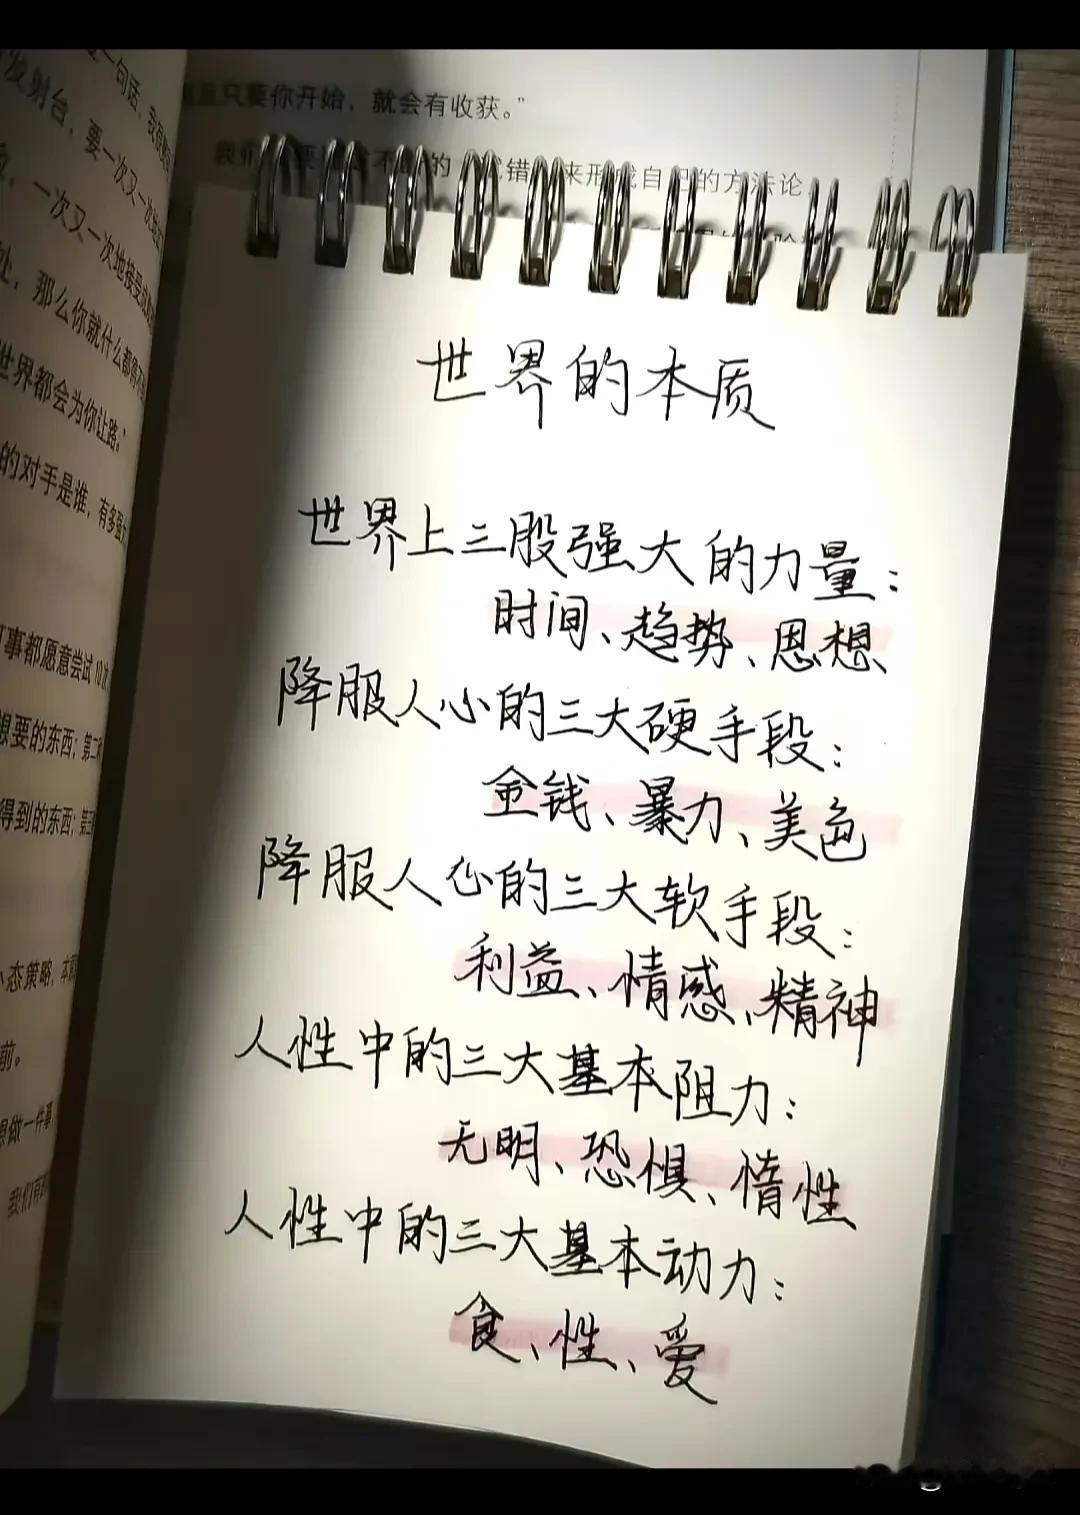 一句话，我很
发射台，要一次又一次
一次又一次地接受
处，那么你就什么都
世界都会为你让路。”
的对手是谁，有多强
事都愿意尝试10次
想要的东西；第二
得到的东西；第三
态策略，本
前。
想做一件事
我们
只要你开始，就会有收获。”
我们 不 的 试错 来形成自己的方法论
世界的本质
世界上三股强大的力量：
时间、趋势、思想、
降服人心的三大硬手段：
金钱、暴力、美色
降服人心的三大软手段：
利益、情感、精神
人性中的三大基本阻力：
无明、恐惧、惰性
人性中的三大基本动力：
食、性、爱